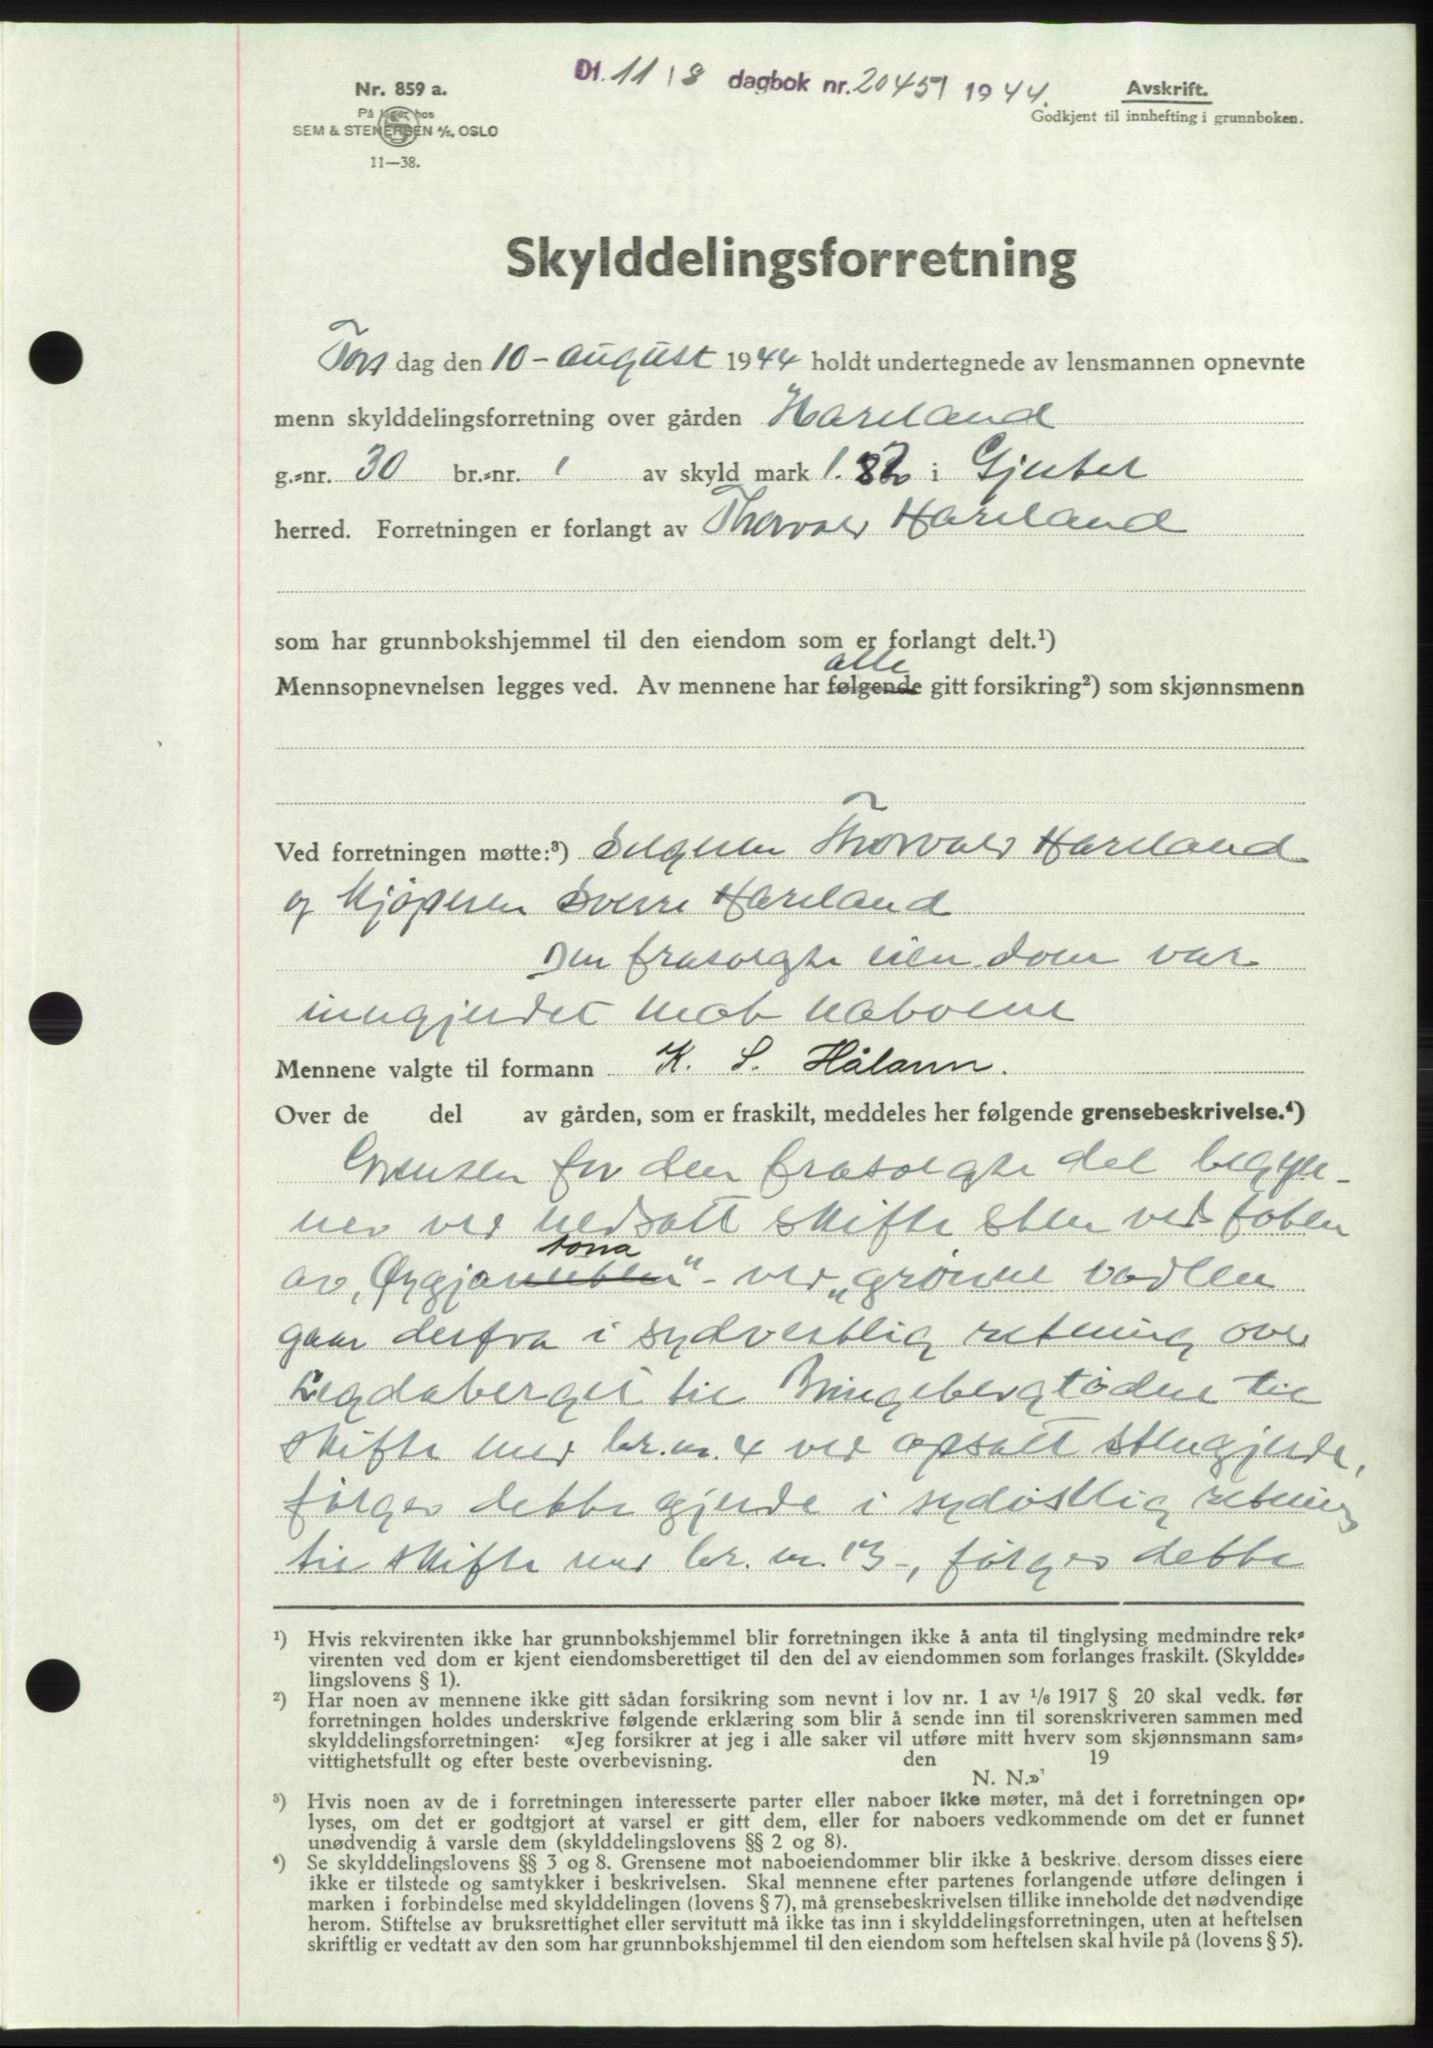 Dt. 11/8 dagbok nr. 2045/1944.
Nr. 859 a.
På lager hos
SEM & STENERSEN A/S, OSLO
11—38.
Avskrift.
Godkjent til innhefting i grunnboken.
Skylddelingsforretning
Tors dag den 10 - august 1944 holdt undertegnede av lensmannen opnevnte
menn skylddelingsforretning over gården Hareland
g.=nr. 30 br.=nr. 1 av skyld mark 1. i Gjestel
herred. Forretningen er forlangt av Thorvald Hareland
som har grunnbokshjemmel til den eiendom som er forlangt delt.¹)
alle
Mennsopnevnelsen legges ved. Av mennene har følgende gitt forsikring²) som skjønnsmenn
Ved forretningen møtte:³) Selgeren Thorvald Hareland
og Kjøperen Sverre Hareland
Den frasolgte eien dom var
inngjerdet mot naboene
Mennene valgte til formann K. S. Hålann.
Over de del av gården, som er fraskilt, meddeles her følgende grensebeskrivelse.⁴)
Grensen for den frasolgte del begyn-
ner ved nedsatt skifte sten ved foten
av „ ved „grønne
gaar derfra i sydvestlig retning over
til til
skifte med br. nr. 4 ved opsatt stengjerde,
følger dette gjerde i sydøstlig retning
til skifte med br. nr. 13 -, følger dette
¹) Hvis rekvirenten ikke har grunnbokshjemmel blir forretningen ikke å anta til tinglysing medmindre rek=
virenten ved dom er kjent eiendomsberettiget til den del av eiendommen som forlanges fraskilt. (Skyldde=
lingslovens § 1).
²) Har noen av mennene ikke gitt sådan forsikring som nevnt i lov nr. 1 av 1/6 1917 § 20 skal vedk. før
forretningen holdes underskrive følgende erklæring som blir å sende inn til sorenskriveren sammen med
skylddelingsforretningen: «Jeg forsikrer at jeg i alle saker vil utføre mitt hverv som skjønnsmann sam=
vittighetsfullt og efter beste overbevisning. den 19
N. N.»
³) Hvis noen av de i forretningen interesserte parter eller naboer ikke møter, må det i forretningen op=
lyses, om det er godtgjort at varsel er gitt dem, eller for naboers vedkommende om det er funnet
unødvendig å varsle dem (skylddelingslovens §§ 2 og 8).
⁴) Se skylddelingslovens §§ 3 og 8. Grensene mot naboeiendommer blir ikke å beskrive, dersom disses eiere
ikke er tilstede og samtykker i beskrivelsen. Skal mennene efter partenes forlangende utføre delingen i
marken i forbindelse med skylddelingen (lovens § 7), må grensebeskrivelsen tillike inneholde det nødvendige
herom. Stiftelse av bruksrettighet eller servitutt må ikke tas inn i skylddelingsforretningen, uten at heftelsen
skriftlig er vedtatt av den som har grunnbokshjemmel til den eiendom som heftelsen skal hvile på (lovens § 5).